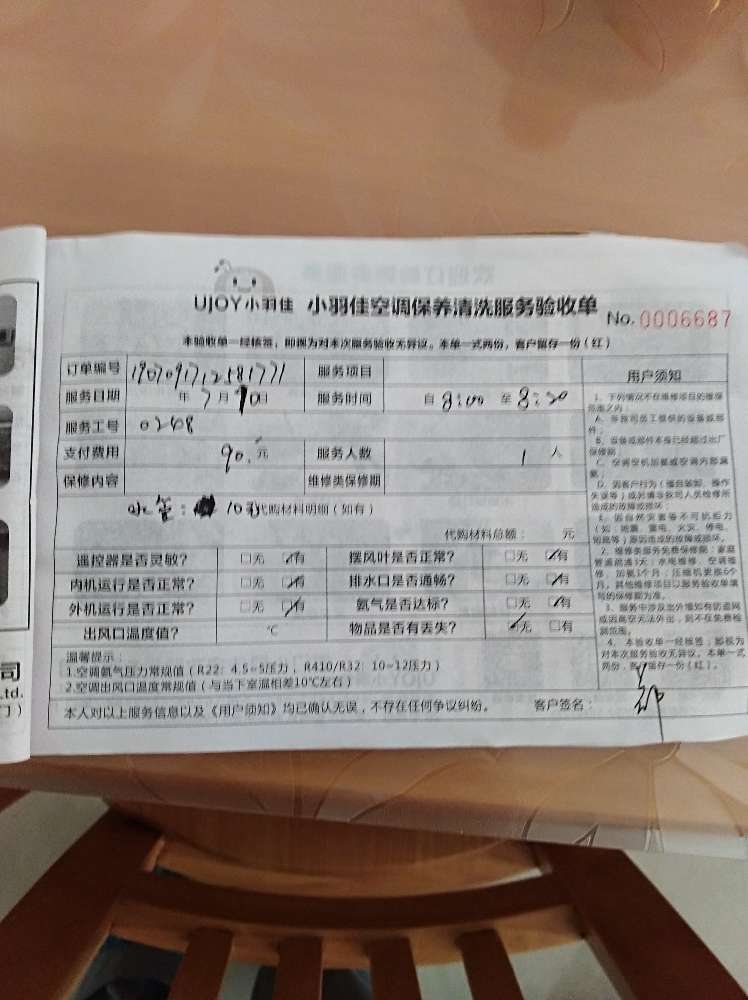 UJOY小羽佳 小羽佳空调保养清洗服务验收单 No. 0006687
本验收单一经核签，即视为对本次服务验收无异议。本单一式两份，客户留存一份（红）
订单编号 1907091712581771 服务项目
服务日期 年 7 月 10 日 服务时间 自 8:00 至 8:20
服务工号 0208
支付费用 90. 元 服务人数 1 人
保修内容 维修类保修期
水管: 10元 代购材料明细（如有）
代购材料总额： 元
遥控器是否灵敏？ □无 ☑有 摆风叶是否正常？ □无 ☑有
内机运行是否正常？ □无 ☑有 排水口是否通畅？ □无 ☑有
外机运行是否正常？ □无 ☑有 氨气是否达标？ □无 ☑有
出风口温度值？ ℃ 物品是否有丢失？ ☑无 □有
温馨提示：
1.空调氨气压力常规值（R22：4.5~5压力，R410/R32：10~12压力）
2.空调出风口温度常规值（与当下室温相差10℃左右）
本人对以上服务信息以及《用户须知》均已确认无误，不存在任何争议纠纷。 客户签名：
用户须知
1、下列情况不在维修项目的维保
范围之内：
A、非我司员工维修的设备或部
件；
B、设备或部件本身已经超过出厂
保修期；
C、空调空机加氨或空调内部漏
氨；
D、因客户行为（擅自装卸、操作
失误等）或另请非我司人员检修所
造成的故障或损坏；
E、因自然灾害等不可抗拒力
（如：地震、雷电、火灾、停电、
短路等）原因造成的故障或损坏。
2、维修类服务免费保修期：家庭
管道疏通3天；水电维修、空调维
修、加氨1个月；压缩机更换6个
月。其他维修项目以服务验收单填
写的保修期为准。
3、服务中涉及出外墙如有防盗网
或因高空无法外出，则不在免费检
测范围。
4、本验收单一经核签，即视为
对本次服务验收无异议。本单一式
两份，客户留存一份（红）。
司
Ltd.
门）